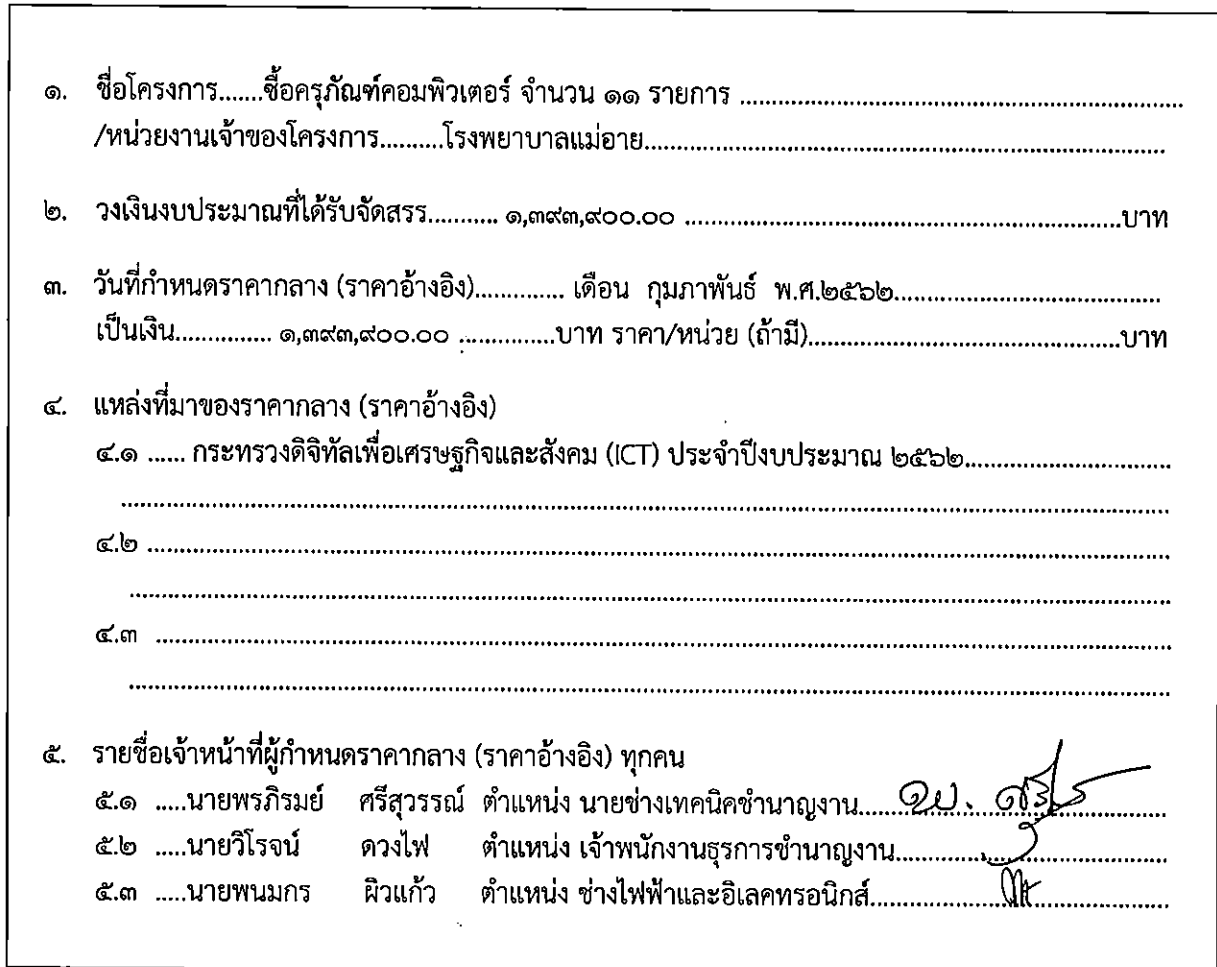 ๑. ชื่อโครงการ.......ซื้อครุภัณฑ์คอมพิวเตอร์ จำนวน ๑๑ รายการ ..........
/หน่วยงานเจ้าของโครงการ..........โรงพยาบาลแม่อาย..........
๒. วงเงินงบประมาณที่ได้รับจัดสรร........... ๑,๓๙๓,๙๐๐.๐๐ ..........บาท
๓. วันที่กำหนดราคากลาง (ราคาอ้างอิง).............. เดือน กุมภาพันธ์ พ.ศ.๒๕๖๒..........
เป็นเงิน............... ๑,๓๙๓,๙๐๐.๐๐ ...............บาท ราคา/หน่วย (ถ้ามี)..........บาท
๔. แหล่งที่มาของราคากลาง (ราคาอ้างอิง)
๔.๑ ...... กระทรวงดิจิทัลเพื่อเศรษฐกิจและสังคม (ICT) ประจำปีงบประมาณ ๒๕๖๒..........
๔.๒ ..........
๔.๓ ..........
๕. รายชื่อเจ้าหน้าที่ผู้กำหนดราคากลาง (ราคาอ้างอิง) ทุกคน
๕.๑ .....นายพรภิรมย์ ศรีสุวรรณ์ ตำแหน่ง นายช่างเทคนิคชำนาญงาน......
๕.๒ .....นายวิโรจน์ ดวงไฟ ตำแหน่ง เจ้าพนักงานธุรการชำนาญงาน..........
๕.๓ .....นายพนมกร ผิวแก้ว ตำแหน่ง ช่างไฟฟ้าและอิเลคทรอนิกส์..........